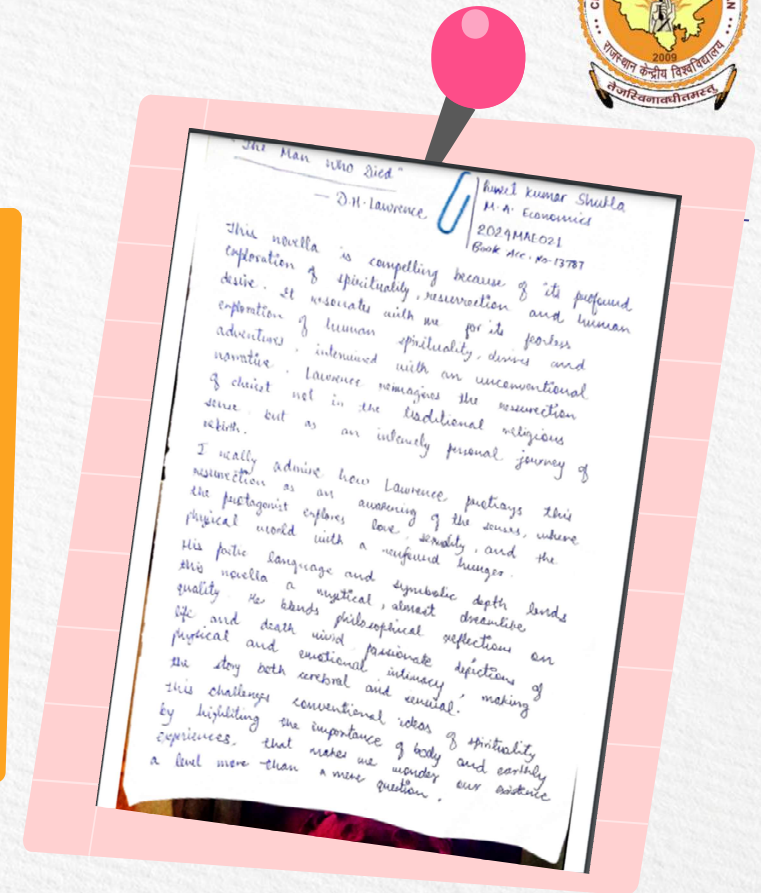 2009
राजस्थान केन्द्रीय विश्वविद्यालय
तेजस्विनावधीतमस्तु
"The Man Who Died"
— D.H. Lawrence
Kumar Shukla
M.A. Economics
2024MAE021
Book Acc. No-13787
This novella is compelling because of its profound
exploration of spirituality, resurrection and human
desire. It resonates with me for its fearless
exploration of human spirituality, desires and
adventures, intertwined with an unconventional
narrative. Lawrence reimagines the resurrection
of christ not in the traditional religious
sense but as an intensely personal journey of
rebirth.
I really admire how Lawrence portrays this
resurrection as an awakening of the senses, where
the protagonist explores love, sexuality, and the
physical world with a newfound hunger.
His poetic language and symbolic depth lends
this novella a mystical, almost dreamlike
quality. He blends philosophical reflections on
life and death vivid passionate depictions of
physical and emotional intimacy, making
the story both cerebral and sensual.
This challenges conventional ideas of spirituality
by highliting the importance of body and earthly
experiences, that makes me wonder our existence
a level more than a mere question.